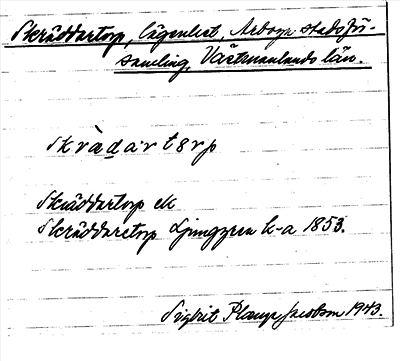 Skräddartorp, lägenhet, Arboga stadsför-
samling, Västmanlands län.
skrädartərp
Skräddartorp ek
Skräddaretorp Ljunggren k-a 1853.
Sigbrit Plange Jacobson 1943.